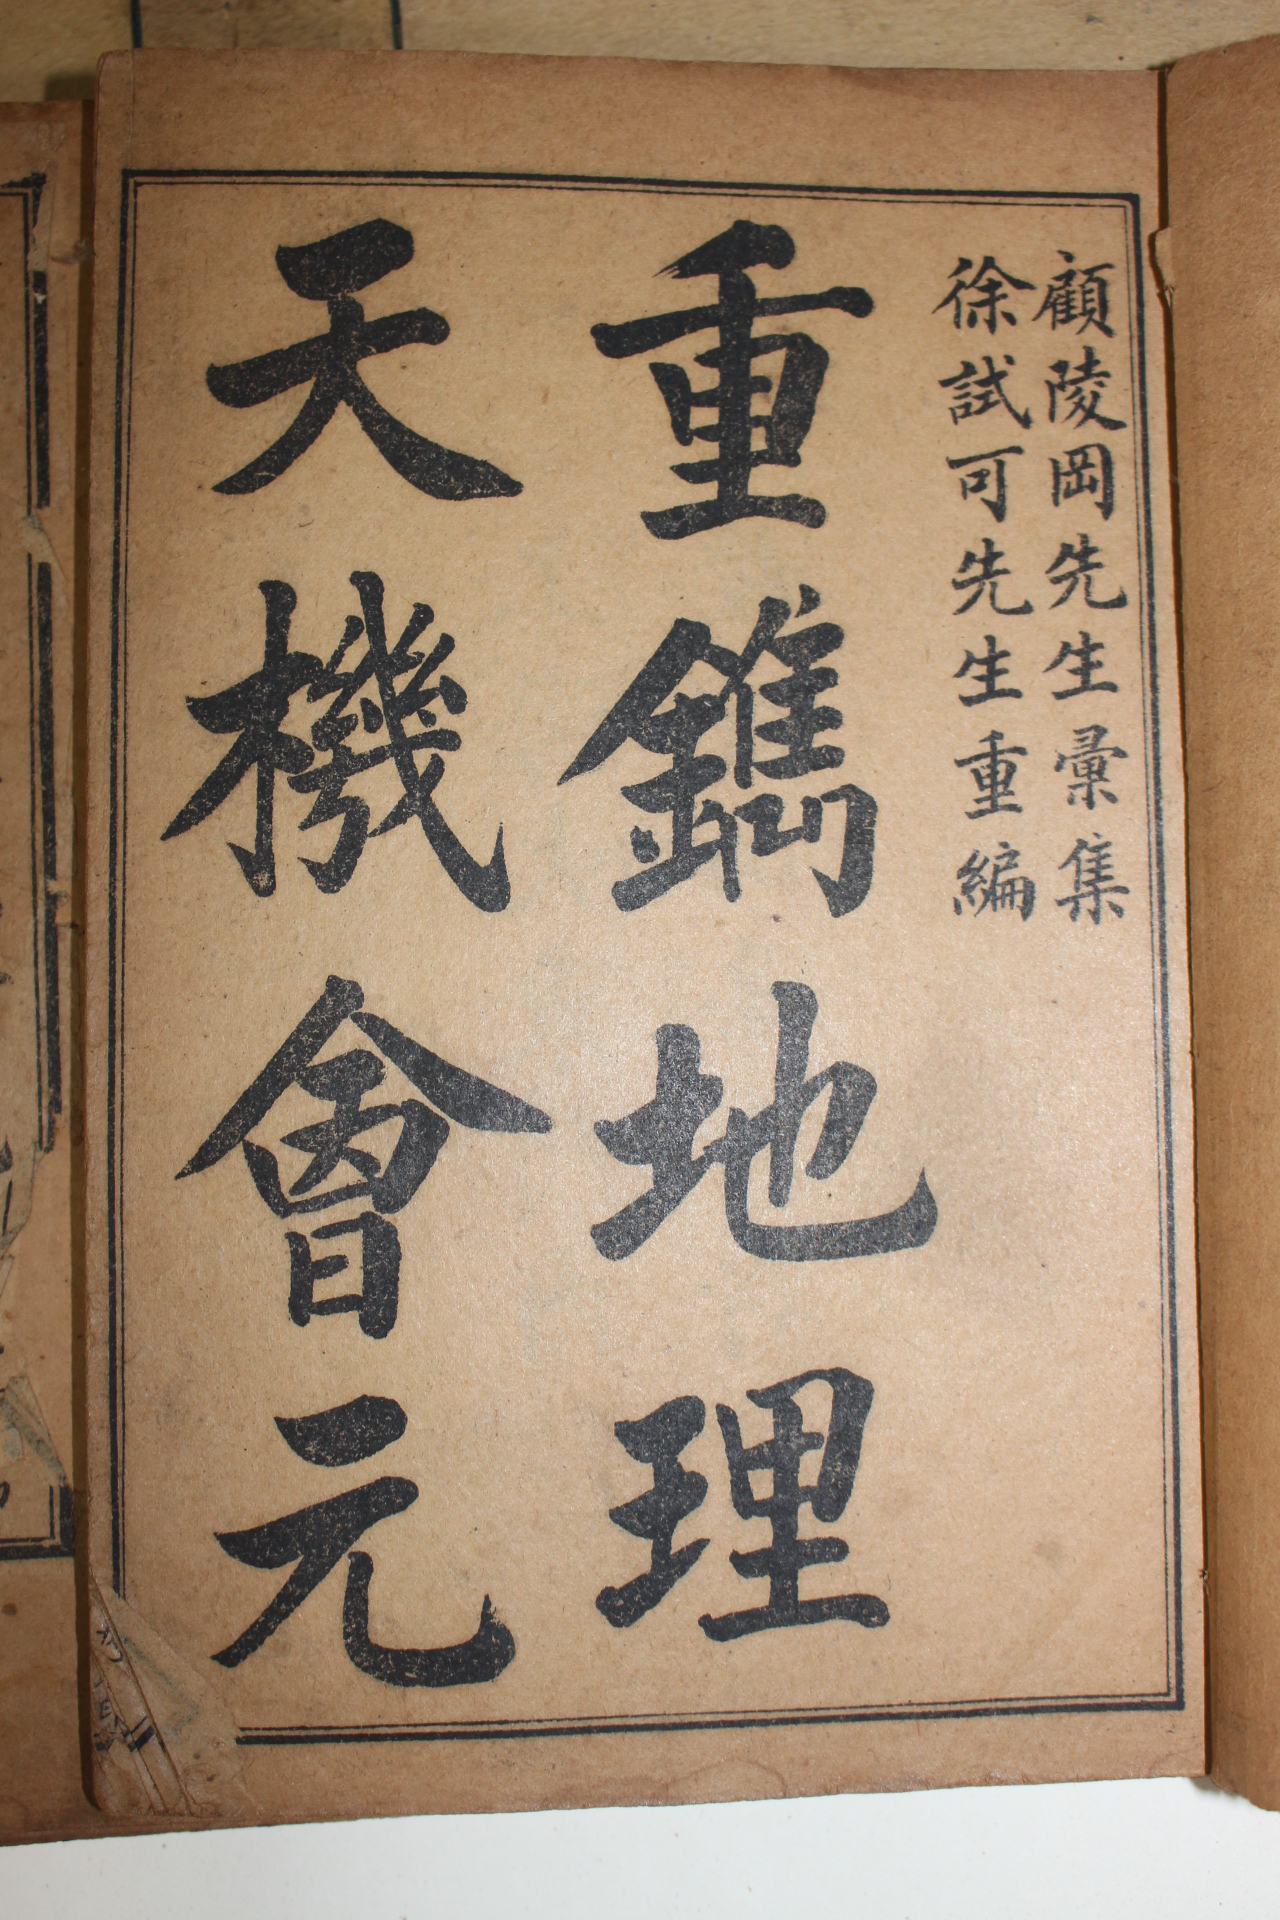 顧陵岡先生彙集
徐試可先生重編
重鐫地理
天機會元